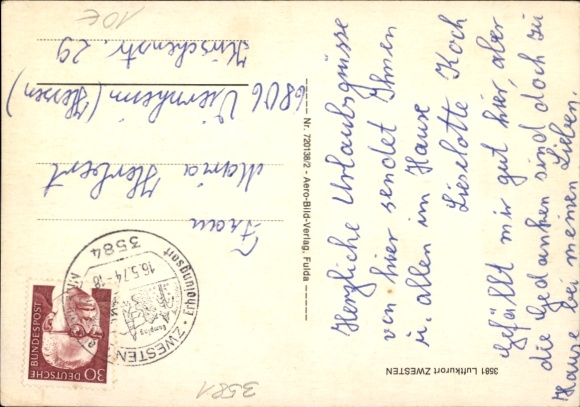 Herzliche Urlaubsgrüsse
von hier sendet Ihnen
u. allen im Hause
Lieselotte Koch
Gefällt mir gut hier, aber
die Gedanken sind doch zu
Hause bei meinen Lieben.
3581 Luftkurort ZWESTEN
Nr. 7201382 - Aero-Bild-Verlag, Fulda
DEUTSCHE
BUNDESPOST
30
3584
ZWESTEN
16.5.74-18
Erholungsort
Camping
Frau
Maria Herbert
6806 Viernheim (Hessen)
Kirschenstr. 29
10€
3581